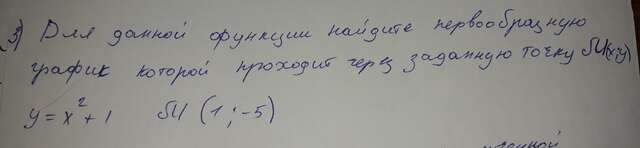 3) Для данной функции найдите первообразную
график которой проходит через заданную точку M(x;y)
y = x² + 1 M (1; -5)